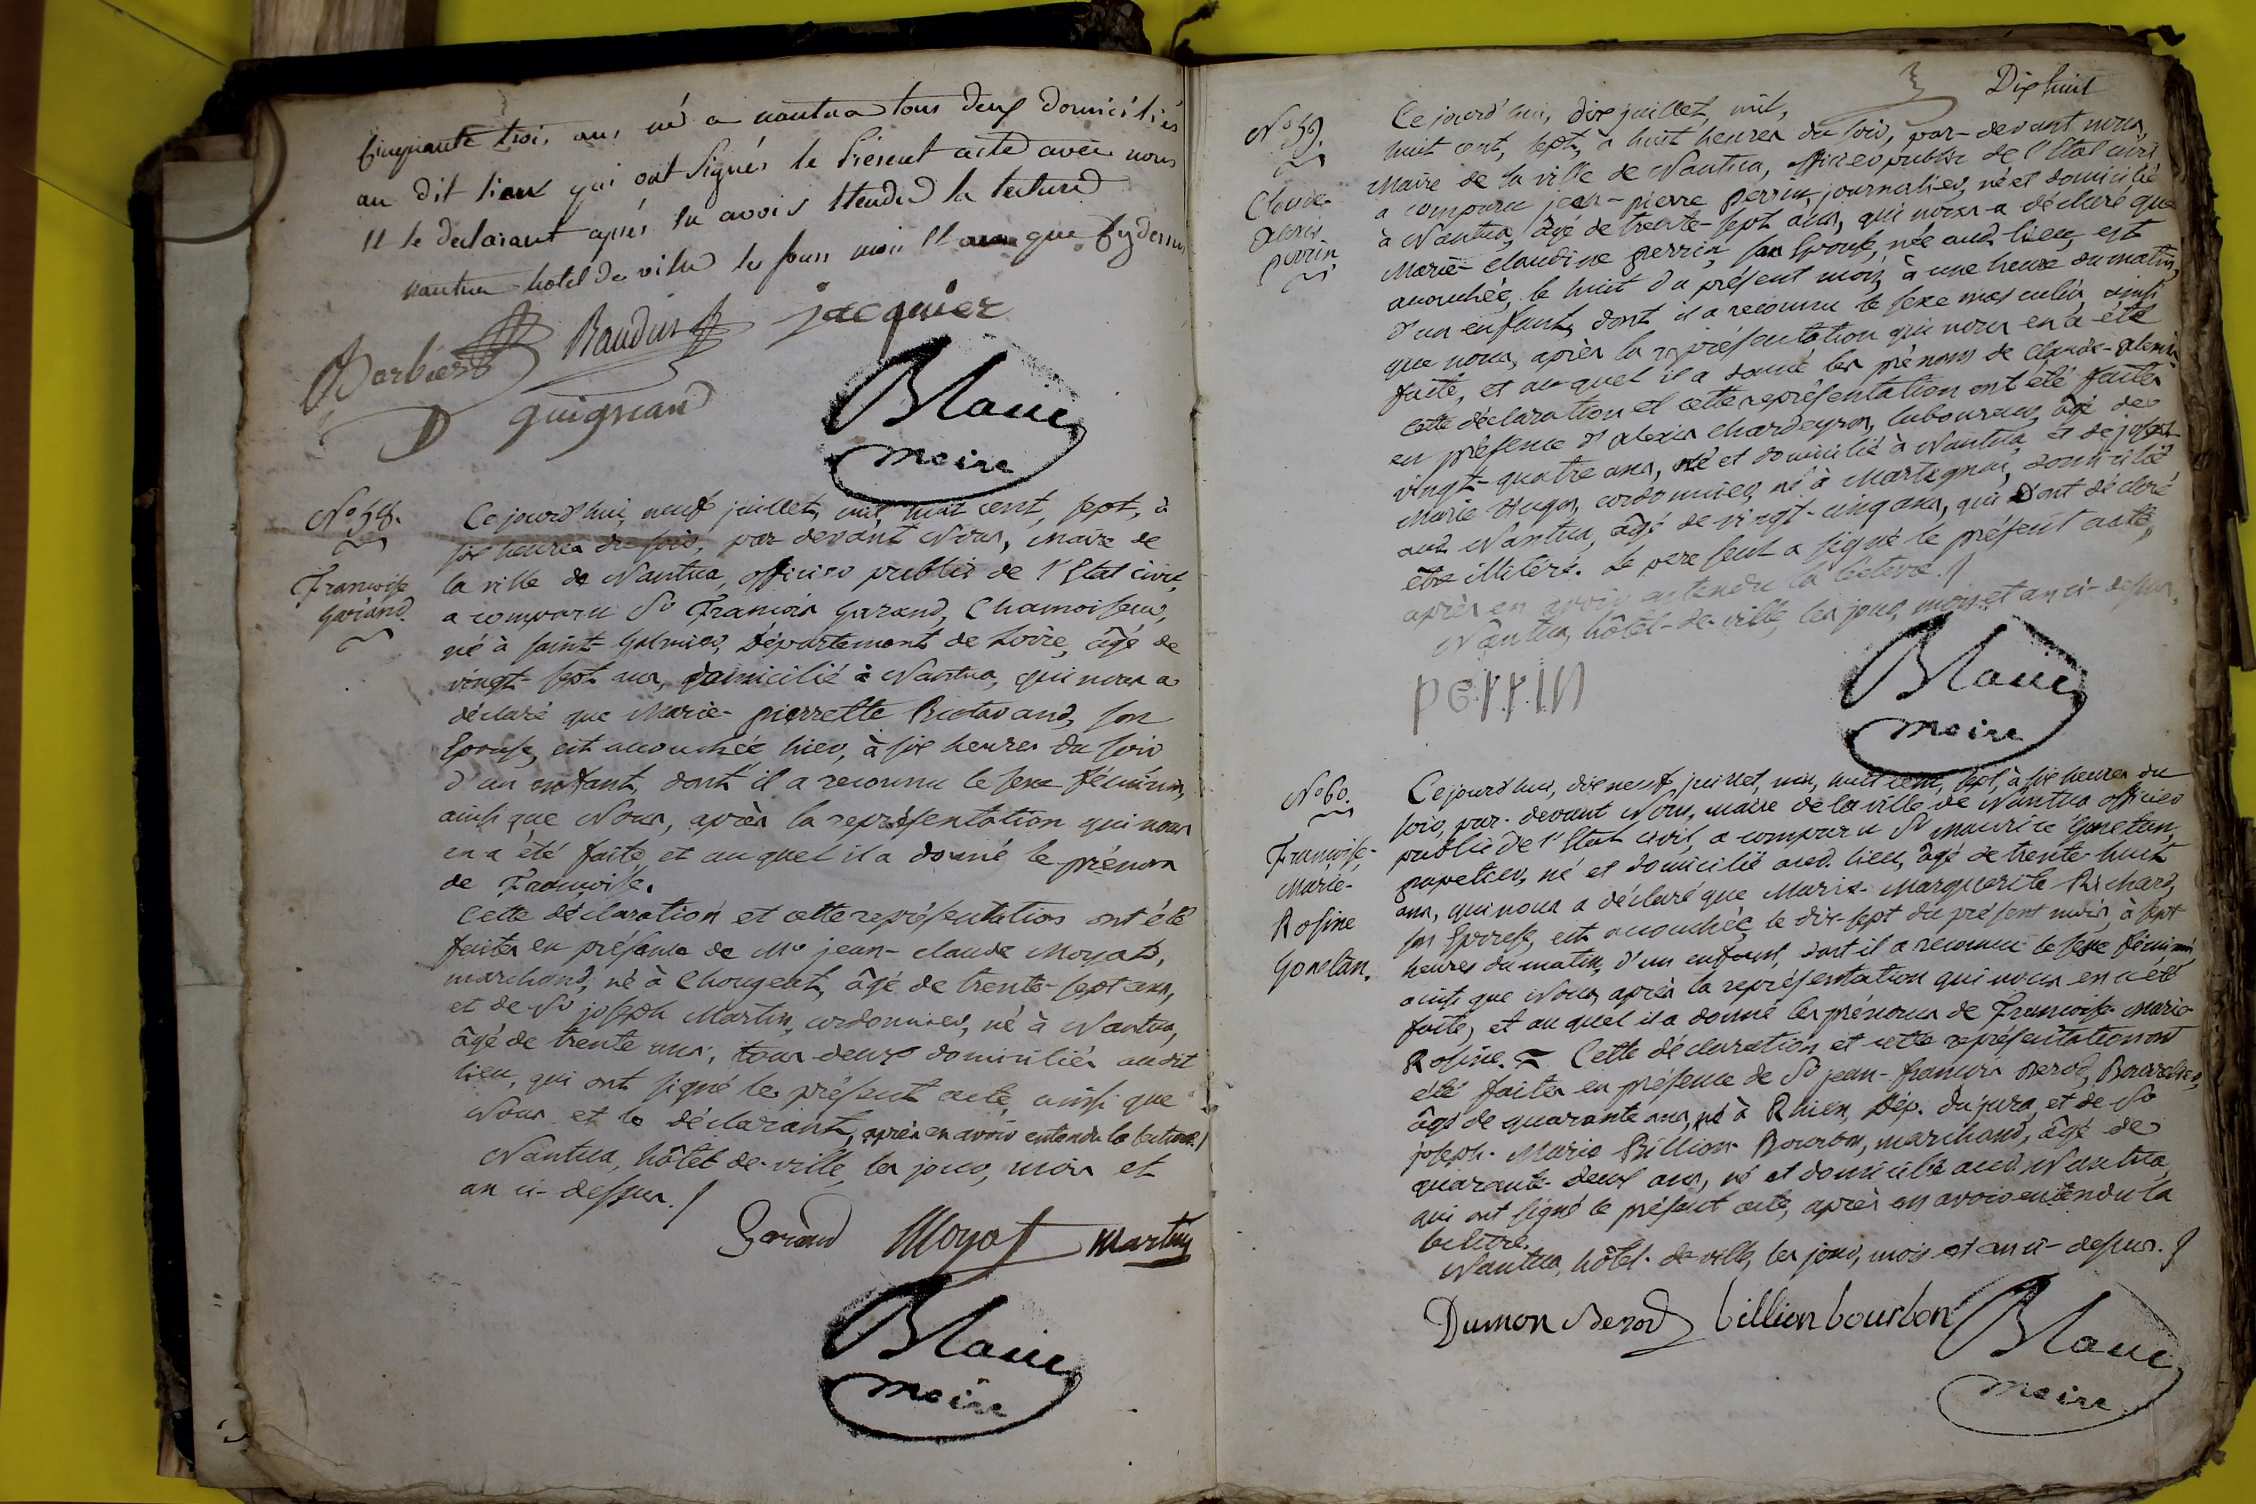 Cinquante trois ans né a nantua tous deux domiciliés
au dit lieux qui ont signés le présent acte avec nous
et le declarant après en avoir entendu la lecture
nantua hotel de ville les jour mois et an que cy dessus
Barbier Baudin jacquier
guignard
Blanc
maire
N.o 58.
Françoise
Garand.
Ce jourd'hui, neuf juillet, mil, huit cent, sept, à
six heures du soir, par-devant Nous, maire de
la ville de Nantua, officier public de l'Etat civil,
a comparu Sr François Garand, Chamoiseur,
né à saint-Galmier, Département de Loire, âgé de
vingt-sept ans, domicilié à Nantua, qui nous a
déclaré que Marie-pierrette, son
Epouse, est accouchée hier, à six heures du soir
d'un enfant, dont il a reconnu le sexe féminin,
ainsi que Nous, après la représentation qui nous
en a été faite, et auquel il a donné le prénom
de Françoise.
Cette déclaration et cette représentation ont été
faites en présence de Mr jean-claude Moyat,
marchand, né à Chougeat, âgé de trente-sept ans,
et de Sr joseph Martin, cordonnier, né à Nantua,
âgé de trente ans, tous deux domiciliés audit
lieu, qui ont signé le présent acte, ainsi que
Nous et le déclarant, après en avoir entendu la lecture./
Nantua, hôtel de-ville, les jour, mois et
an ci-dessus./
Garand Moyat Martin
Blanc
maire
Dix huit
N.o 59.
Claude-
alexis
perrin
Ce jourd'hui, dix juillet, mil,
huit cent, sept, à huit heures du soir, par-devant nous,
Maire de la ville de Nantua, officier public de l'Etat civil,
a comparu jean-pierre perrin, journalier, né et domicilié
à Nantua, âgé de trente-sept ans, qui nous a déclaré que
Marie-claudine perrin, son Epouse, née aud. lieu, est
accouchée, le huit du présent mois, à une heure du matin,
d'un enfant, dont il a reconnu le sexe masculin, ainsi
que nous, après la représentation qui nous en a été
faite, et auquel il a donné les prénoms de Claude-alexis
Cette déclaration et cette représentation ont été faites
en présence d'alexis chardeyron, laboureur, âgé de
vingt-quatre ans, né et domicilié à Nantua, et de joseph-
Marie Hugon, cordonnier, né à Martignat, domicilié
aud. Nantua, âgé de vingt-cinq ans, qui ont déclaré
être illitéré. Le père seul a signé le présent acte,
après en avoir entendu la lecture./
Nantua, hôtel-de-ville, les jour, mois et an ci-dessus.
perrin
Blanc
maire
N.o 60.
Françoise-
Marie-
Rosine
Gonetan.
Ce jourd'hui, dix neuf juillet, mil, huit cent, sept, à six heures du
soir, par-devant Nous, maire de la ville de Nantua officier
public de l'Etat civil, a comparu Sr maurice Gonetan,
papetier, né et domicilié aud. lieu, âgé de trente-huit
ans, qui nous a déclaré que Marie-Marguerite Richard,
son Epouse, est accouchée, le dix-sept du présent mois, à sept
heures du matin, d'un enfant, dont il a reconnu le sexe féminin,
ainsi que Nous, après la représentation qui nous en a été
faite, et auquel il a donné les prénoms de Françoise-Marie-
Rosine. Cette déclaration et cette représentation ont
été faites en présence de Sr jean-françois Berod,
âgé de quarante ans, né à, Dép. du jura, et de Sr
joseph-Marie Billion-Bourbon, marchand, âgé de
quarante-deux ans, né et domicilié aud. Nantua,
qui ont signé le présent acte, après en avoir entendu la
lecture.
Nantua, hôtel-de-ville, les jour, mois et an ci-dessus./
Berod billion bourbon
Blanc
maire